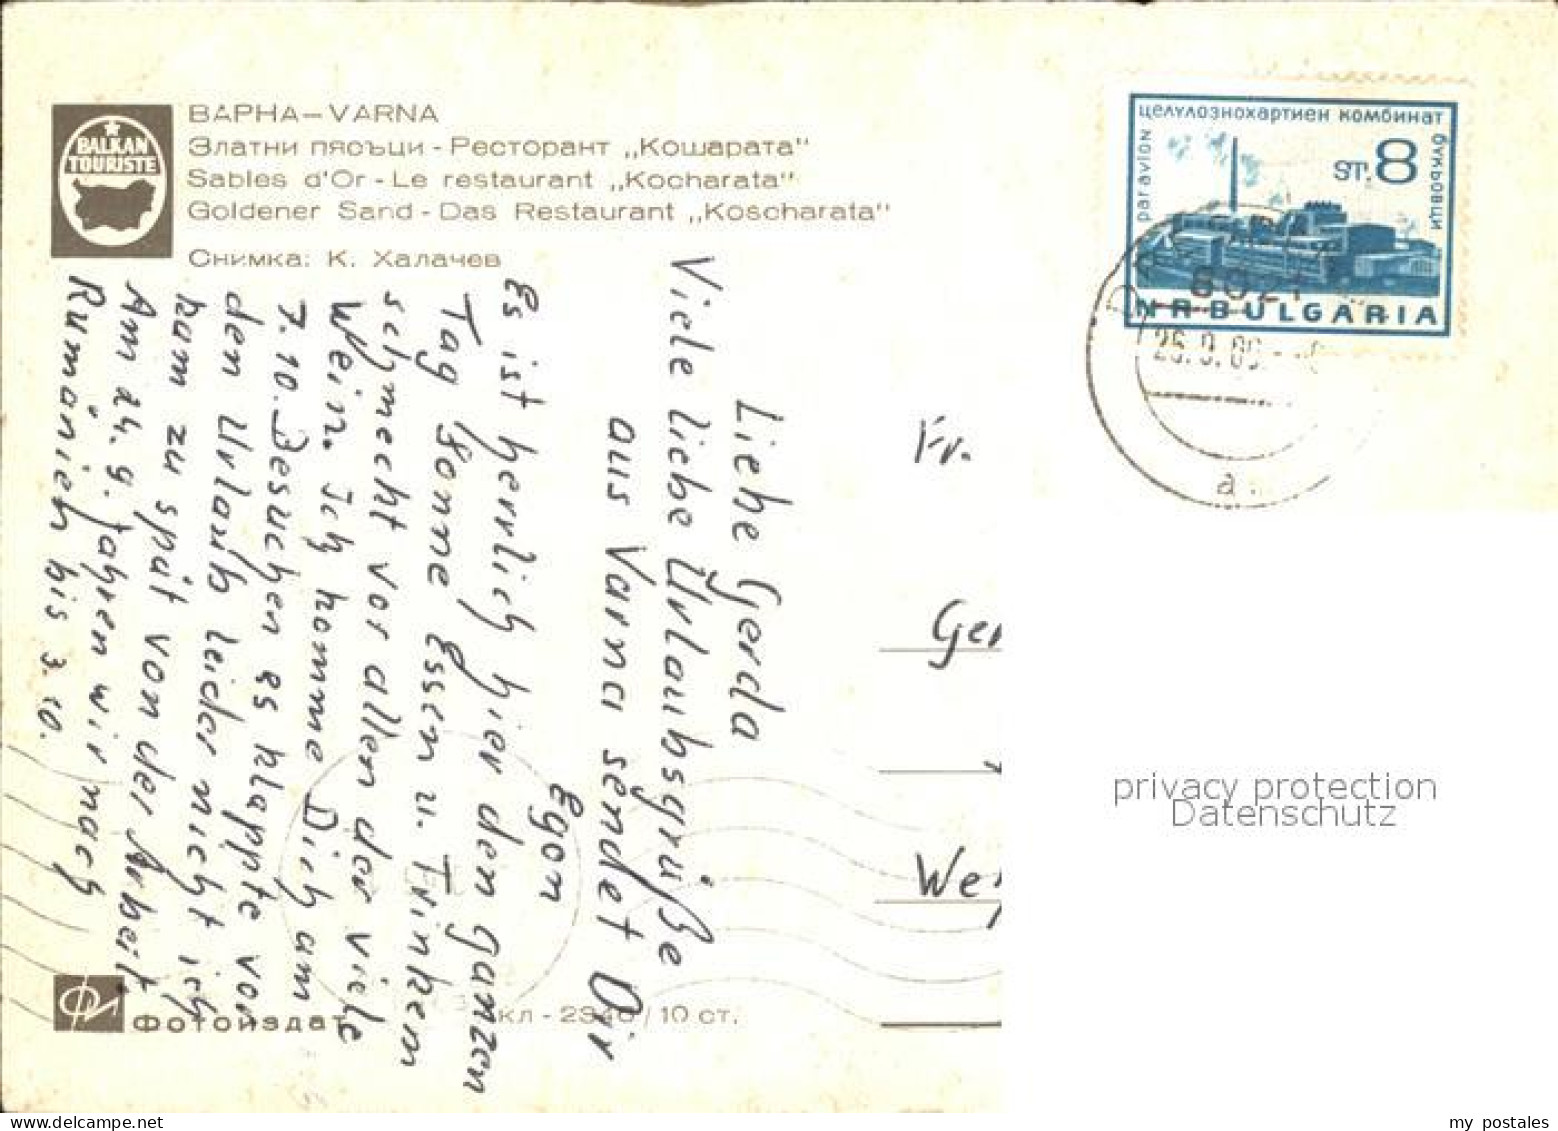 BALKAN
TOURISTE
ВАРНА–VARNA
Златни пясъци - Ресторант „Кошарата"
Sables d'Or - Le restaurant „Kocharata"
Goldener Sand - Das Restaurant „Koscharata"
Снимка: К. Халачев
Liebe Gerda
Viele liebe Urlaubsgrüße
aus Varna sendet Dir
Egon
Es ist herrlich hier den ganzen
Tag Sonne Essen u. Trinken
schmeckt vor allen der viele
Wein. Ich komme Dich am
7.10. Besuchen es klappte vor
den Urlaub leider nicht ich
kam zu spät von der Arbeit
Am 24. 9. fahren wir nach
Rumänien bis 3. 10.
Фотоиздат
кл - 2346 / 10 ст.
целулознохартиен комбинат
букьовци
par avion
ST. 8
NR BULGARIA
a
Fr.
Ger
We
privacy protection
Datenschutz
my postales